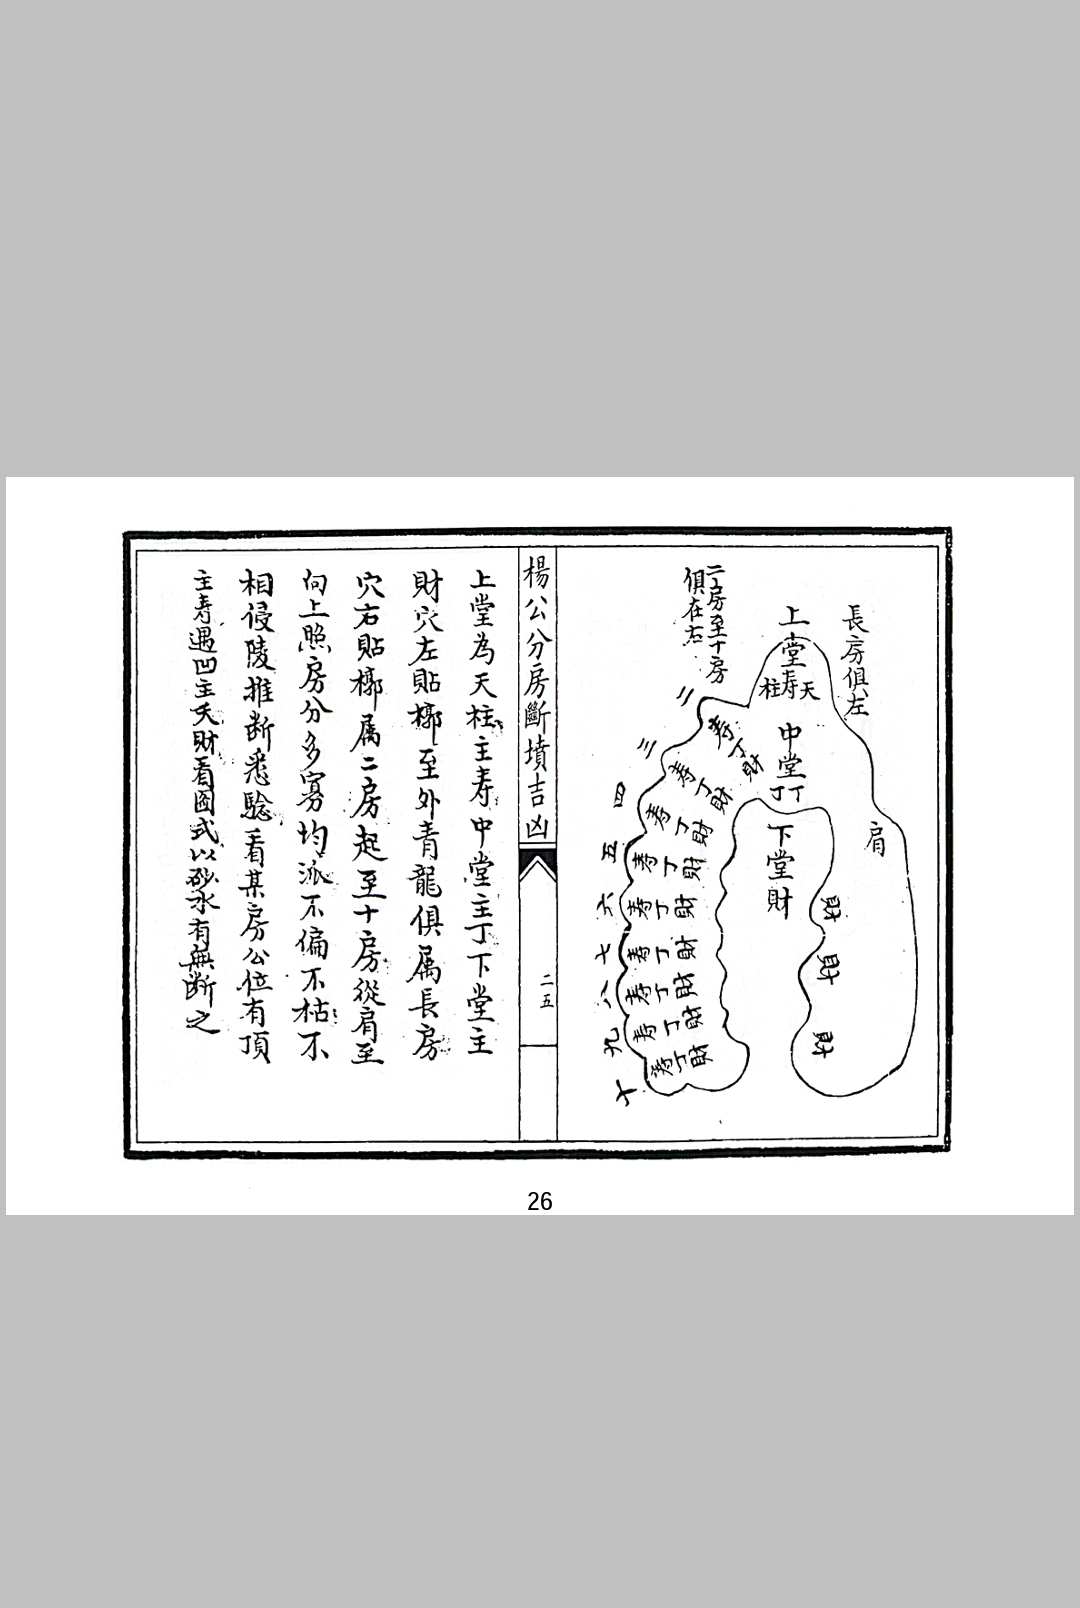 長房俱左
上堂
天
寿
柱
中堂
丁丁
下堂
財
肩
財
財
財
二房至十房
俱在右
二
寿丁財
三
寿丁財
四
寿丁財
五
寿丁財
六
寿丁財
七
寿丁財
八
寿丁財
九
寿丁財
十
寿丁財
楊公分房斷墳吉凶
二五
上堂為天柱主寿中堂主丁下堂主
財穴左貼槨至外青龍俱属長房
穴右貼槨属二房起至十房從肩至
向上照房分多寡均派不偏不枯不
相侵陵推断悉驗看某房公位有頂
主寿遇凹主夭財看图式以砂水有無断之
26